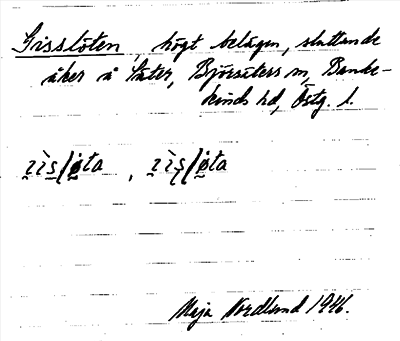 Gisslöten, högt belägen, sluttande
åker å Säter, Björsäters sn, Banke-
kinds hd, Östg. l.
Maja Nordlund 1946.